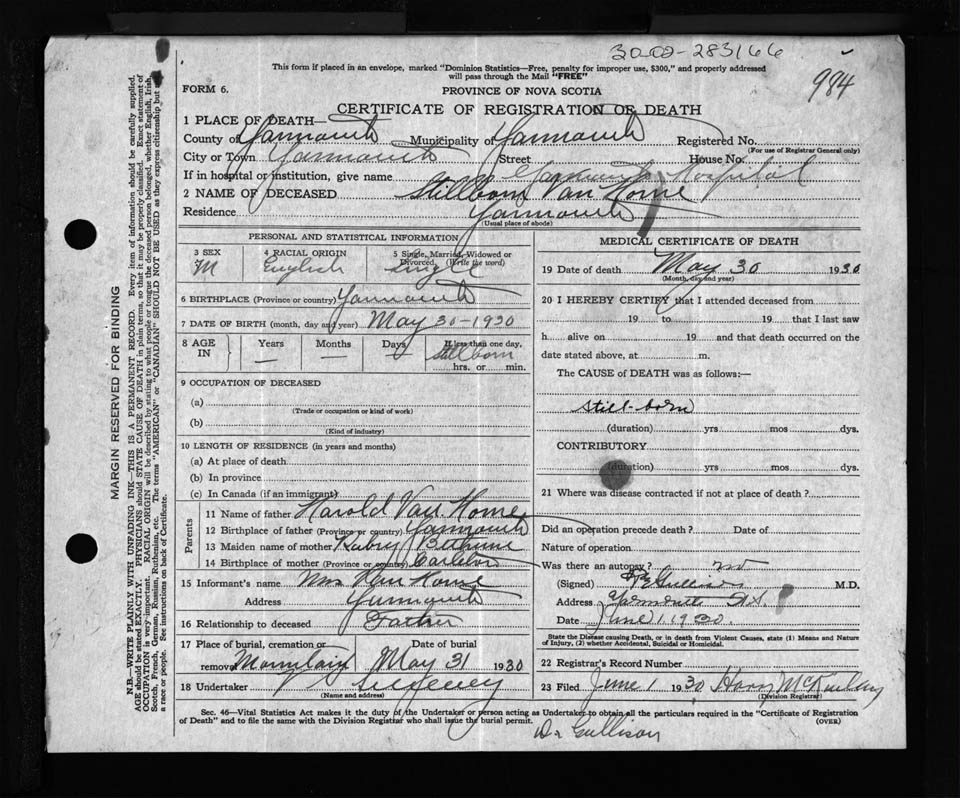 30-02-283166
984
This form if placed in an envelope, marked "Dominion Statistics—Free, penalty for improper use, $300," and properly addressed
will pass through the Mail "FREE"
FORM 6.
PROVINCE OF NOVA SCOTIA
CERTIFICATE OF REGISTRATION OF DEATH
1 PLACE OF DEATH—
County of Yarmouth Municipality of Yarmouth Registered No.
(For use of Registrar General only)
City or Town Yarmouth Street House No.
If in hospital or institution, give name Yarmouth Hospital
2 NAME OF DECEASED Stillborn Van Horne
Residence Yarmouth
(Usual place of abode)
PERSONAL AND STATISTICAL INFORMATION
3 SEX 4 RACIAL ORIGIN 5 Single, Married, Widowed or Divorced, (Write the word)
M English single
6 BIRTHPLACE (Province or country) Yarmouth
7 DATE OF BIRTH (month, day and year) May 30-1930
8 AGE IN Years Months Days If less than one day,
— — — Stillborn
hrs. or min.
9 OCCUPATION OF DECEASED
(a)
(Trade or occupation or kind of work)
(b)
(Kind of industry)
10 LENGTH OF RESIDENCE (in years and months)
(a) At place of death
(b) In province
(c) In Canada (if an immigrant)
Parents
11 Name of father Harold Van Horne
12 Birthplace of father (Province or country) Yarmouth
13 Maiden name of mother Rubey Bethune
14 Birthplace of mother (Province or country) Carleton
15 Informant's name Mrs Van Horne
Address Yarmouth
16 Relationship to deceased Father
17 Place of burial, cremation or removal Date of burial
Mountain May 31 1930
18 Undertaker V Sweeney
(Name and address)
MEDICAL CERTIFICATE OF DEATH
19 Date of death May 30 1930
(Month, day and year)
20 I HEREBY CERTIFY that I attended deceased from
19 to 19 that I last saw
h alive on 19 and that death occurred on the
date stated above, at m.
The CAUSE of DEATH was as follows:—
still-born
(duration) yrs mos dys.
CONTRIBUTORY
(duration) yrs mos dys.
21 Where was disease contracted if not at place of death?
Did an operation precede death? Date of
Nature of operation
Was there an autopsy? no
(Signed) Gullison M.D.
Address Yarmouth N.S.
Date June 1. 1930.
State the Disease causing Death, or in death from Violent Causes, state (1) Means and Nature
of Injury, (2) whether Accidental, Suicidal or Homicidal.
22 Registrar's Record Number
23 Filed June 1 1930 Harry
(Division Registrar)
Sec. 46—Vital Statistics Act makes it the duty of the Undertaker or person acting as Undertaker to obtain all the particulars required in the "Certificate of Registration
of Death" and to file the same with the Division Registrar who shall issue the burial permit.
(OVER)
Dr Gullison
MARGIN RESERVED FOR BINDING
N.B.—WRITE PLAINLY WITH UNFADING INK—THIS IS A PERMANENT RECORD. Every item of information should be carefully supplied.
AGE should be stated EXACTLY. PHYSICIANS should STATE CAUSE OF DEATH in plain terms, so that it may be properly classified. Exact statement of
OCCUPATION is very important. RACIAL ORIGIN will be described by stating to what people or tongue the deceased person belonged, whether English, Irish,
Scotch, French, German, Russian, Ruthenian, etc. The terms "AMERICAN" or "CANADIAN" SHOULD NOT BE USED as they express citizenship but not
a race or people. See instructions on back of Certificate.